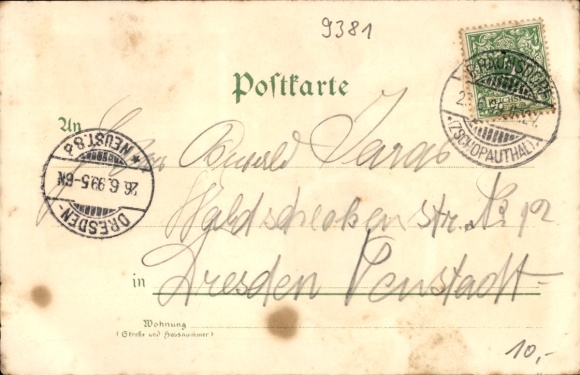 9381
Postkarte
BRAUNSDORF
(ZSCHOPAUTHAL)
An
Herrn Oswald
DRESDEN-NEUST. 8d
26.6.99 5-6N
str. No 12
in Dresden Neustadt-
Wohnung
(Straße und Hausnummer)
10,-